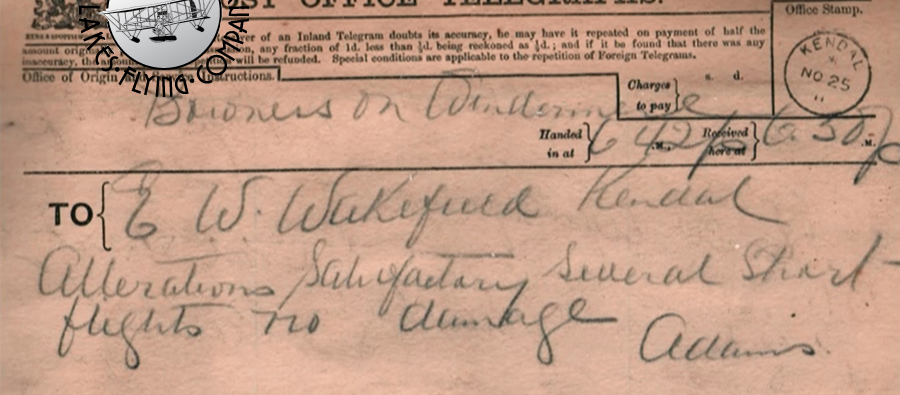 ST OFFICE TELEGRAPHS.
LAKES.FLYING.COMPANY
Office Stamp.
ver of an Inland Telegram doubts its accuracy, he may have it repeated on payment of half the
amount origi on, any fraction of 1d. less than ½d. being reckoned as ½d.; and if it be found that there was any
inaccuracy, the will be refunded. Special conditions are applicable to the repetition of Foreign Telegrams.
KENDAL
NO 25
11
Office of Origin and Service Instructions.
Charges
to pay
s. d.
Bowness on Windermere
Handed
in at
6 42 p
.M.,
Received
here at
6.50 p
.M.
TO E W. Wakefield Kendal
Alterations Satisfactory Several Short
flights no damage
Adams.